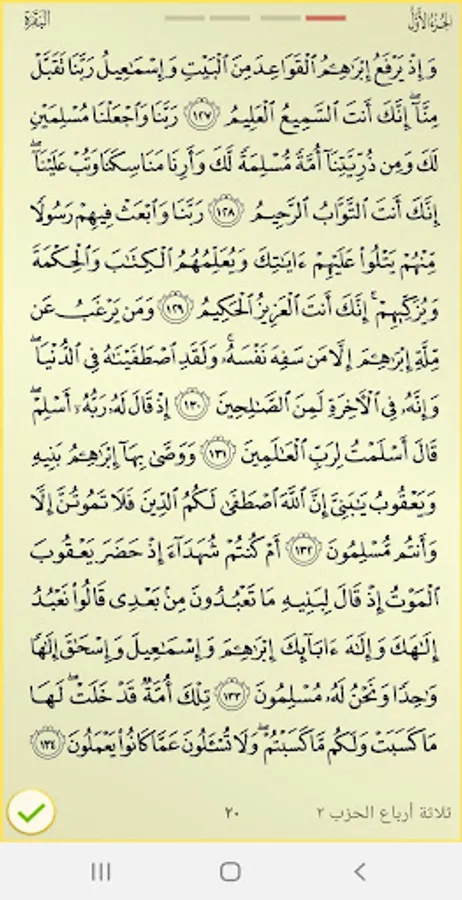 الجزء الأول
البقرة
وَإِذْ يَرْفَعُ إِبْرَٰهِـۧمُ ٱلْقَوَاعِدَ مِنَ ٱلْبَيْتِ وَإِسْمَٰعِيلُ رَبَّنَا تَقَبَّلْ
مِنَّآ ۖ إِنَّكَ أَنتَ ٱلسَّمِيعُ ٱلْعَلِيمُ ١٢٧ رَبَّنَا وَٱجْعَلْنَا مُسْلِمَيْنِ
لَكَ وَمِن ذُرِّيَّتِنَآ أُمَّةً مُّسْلِمَةً لَّكَ وَأَرِنَا مَنَاسِكَنَا وَتُبْ عَلَيْنَآ ۖ
إِنَّكَ أَنتَ ٱلتَّوَّابُ ٱلرَّحِيمُ ١٢٨ رَبَّنَا وَٱبْعَثْ فِيهِمْ رَسُولًا
مِّنْهُمْ يَتْلُوا۟ عَلَيْهِمْ ءَايَٰتِكَ وَيُعَلِّمُهُمُ ٱلْكِتَٰبَ وَٱلْحِكْمَةَ
وَيُزَكِّيهِمْ ۚ إِنَّكَ أَنتَ ٱلْعَزِيزُ ٱلْحَكِيمُ ١٢٩ وَمَن يَرْغَبُ عَن
مِّلَّةِ إِبْرَٰهِـۧمَ إِلَّا مَن سَفِهَ نَفْسَهُۥ ۚ وَلَقَدِ ٱصْطَفَيْنَٰهُ فِى ٱلدُّنْيَا ۖ
وَإِنَّهُۥ فِى ٱلْءَاخِرَةِ لَمِنَ ٱلصَّٰلِحِينَ ١٣٠ إِذْ قَالَ لَهُۥ رَبُّهُۥٓ أَسْلِمْ ۖ
قَالَ أَسْلَمْتُ لِرَبِّ ٱلْعَٰلَمِينَ ١٣١ وَوَصَّىٰ بِهَآ إِبْرَٰهِـۧمُ بَنِيهِ
وَيَعْقُوبُ يَٰبَنِىَّ إِنَّ ٱللَّهَ ٱصْطَفَىٰ لَكُمُ ٱلدِّينَ فَلَا تَمُوتُنَّ إِلَّا
وَأَنتُم مُّسْلِمُونَ ١٣٢ أَمْ كُنتُمْ شُهَدَآءَ إِذْ حَضَرَ يَعْقُوبَ
ٱلْمَوْتُ إِذْ قَالَ لِبَنِيهِ مَا تَعْبُدُونَ مِنۢ بَعْدِى قَالُوا۟ نَعْبُدُ
إِلَٰهَكَ وَإِلَٰهَ ءَابَآئِكَ إِبْرَٰهِـۧمَ وَإِسْمَٰعِيلَ وَإِسْحَٰقَ إِلَٰهًا
وَٰحِدًا وَنَحْنُ لَهُۥ مُسْلِمُونَ ١٣٣ تِلْكَ أُمَّةٌ قَدْ خَلَتْ ۖ لَهَا
مَا كَسَبَتْ وَلَكُم مَّا كَسَبْتُمْ ۖ وَلَا تُسْـَٔلُونَ عَمَّا كَانُوا۟ يَعْمَلُونَ ١٣٤
ثلاثة أرباع الحزب ٢
٢٠